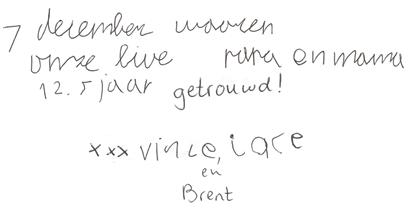 7 december waaren
onze live papa en mama
12.5 jaar getrouwd!
xxx vince, Lace
en
Brent